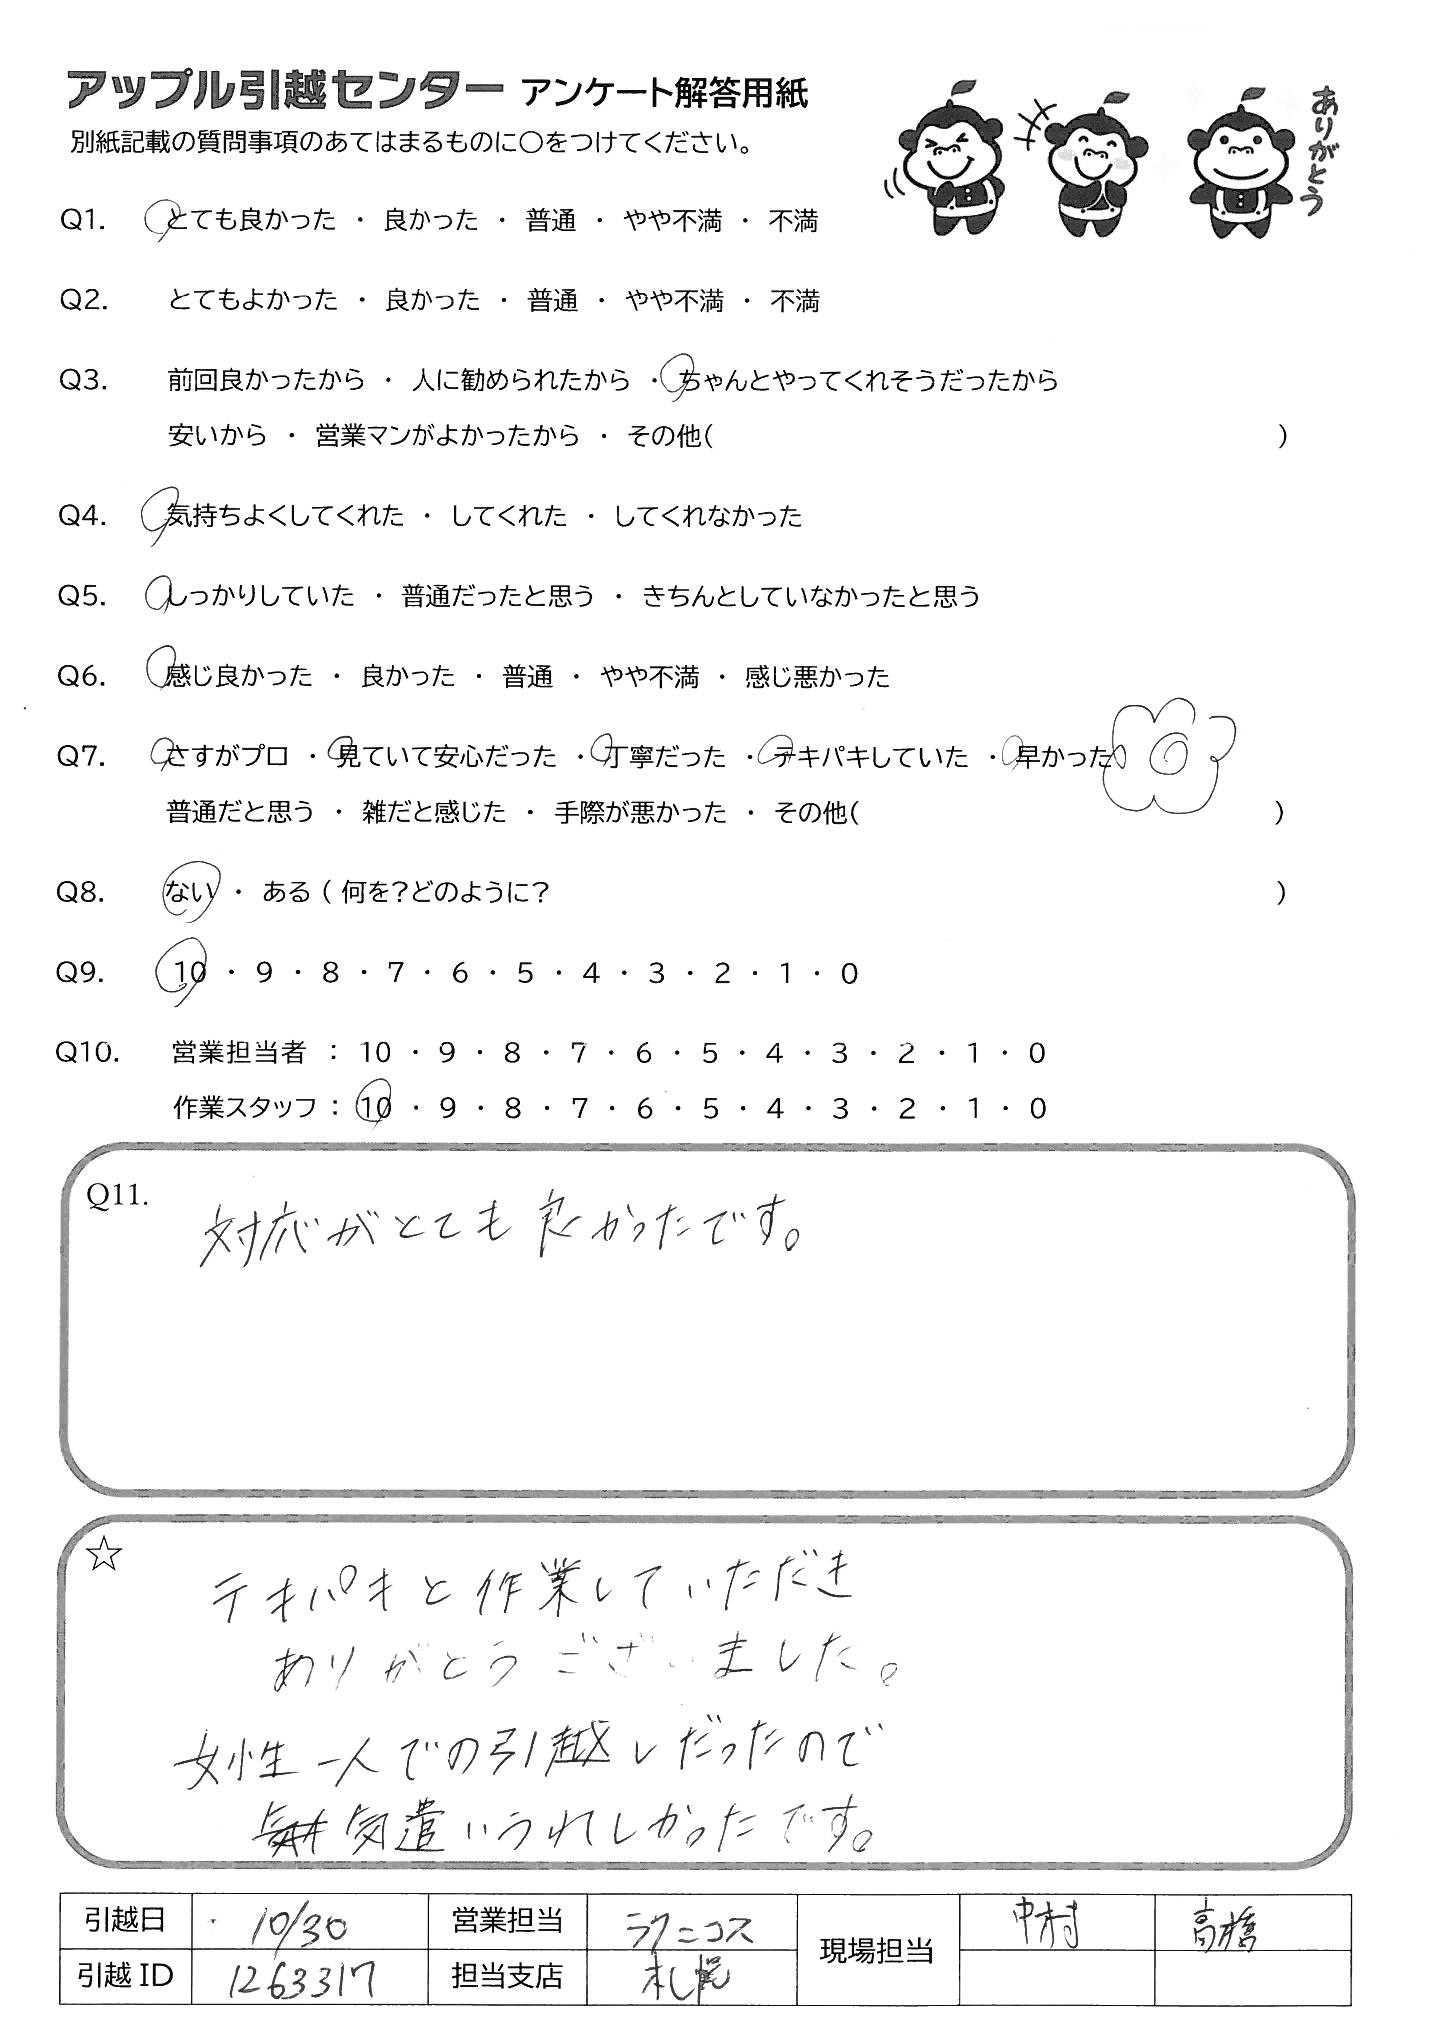 アップル引越センター アンケート解答用紙
別紙記載の質問事項のあてはまるものに〇をつけてください。
ありがとう
Q1. とても良かった ・ 良かった ・ 普通 ・ やや不満 ・ 不満
Q2. とてもよかった ・ 良かった ・ 普通 ・ やや不満 ・ 不満
Q3. 前回良かったから ・ 人に勧められたから ・ ちゃんとやってくれそうだったから
安いから ・ 営業マンがよかったから ・ その他( )
Q4. 気持ちよくしてくれた ・ してくれた ・ してくれなかった
Q5. しっかりしていた ・ 普通だったと思う ・ きちんとしていなかったと思う
Q6. 感じ良かった ・ 良かった ・ 普通 ・ やや不満 ・ 感じ悪かった
Q7. さすがプロ ・ 見ていて安心だった ・ 丁寧だった ・ テキパキしていた ・ 早かった
普通だと思う ・ 雑だと感じた ・ 手際が悪かった ・ その他( )
Q8. ない ・ ある ( 何を?どのように? )
Q9. 10 ・ 9 ・ 8 ・ 7 ・ 6 ・ 5 ・ 4 ・ 3 ・ 2 ・ 1 ・ 0
Q10. 営業担当者 : 10 ・ 9 ・ 8 ・ 7 ・ 6 ・ 5 ・ 4 ・ 3 ・ 2 ・ 1 ・ 0
作業スタッフ : 10 ・ 9 ・ 8 ・ 7 ・ 6 ・ 5 ・ 4 ・ 3 ・ 2 ・ 1 ・ 0
Q11.
対応がとても良かったです。
☆
テキパキと作業していただき
ありがとうございました。
女性一人での引越しだったので
気遣いうれしかったです。
引越日 10/30 営業担当 ラクニコス 現場担当 中村 高橋
引越ID 1263317 担当支店 札幌